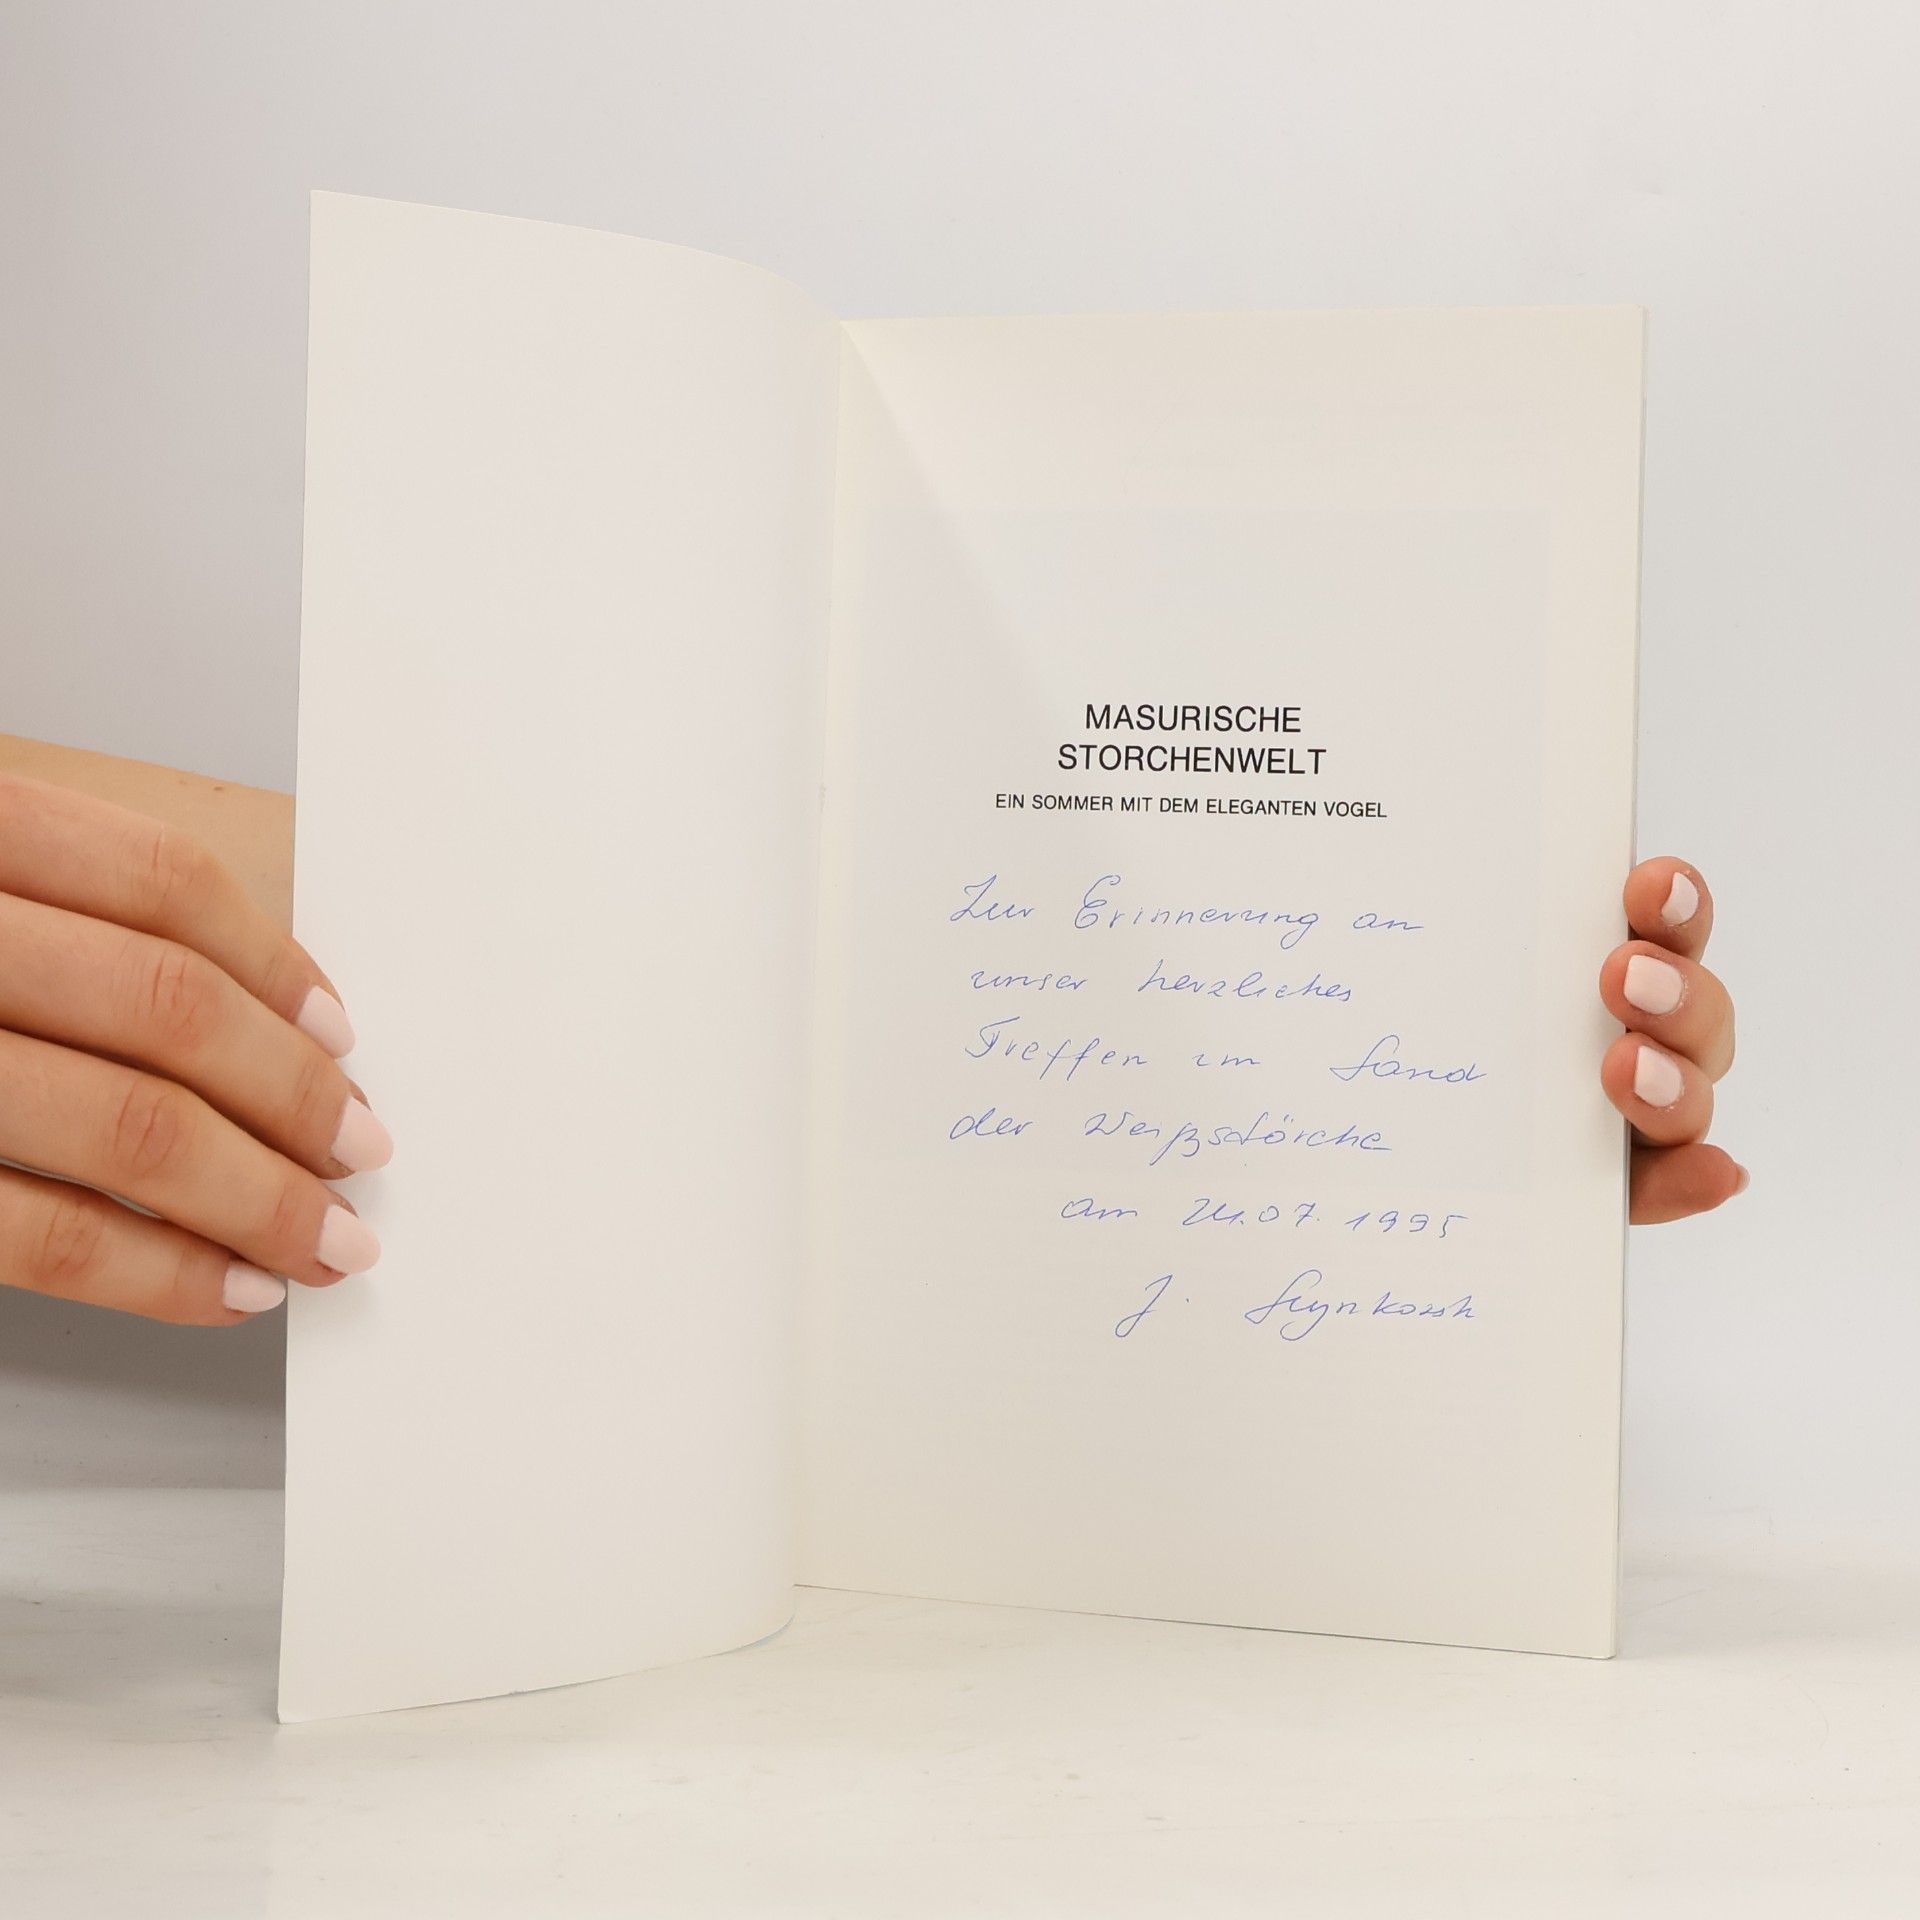 MASURISCHE
STORCHENWELT
EIN SOMMER MIT DEM ELEGANTEN VOGEL
Zur Erinnerung an
unser herzliches
Treffen im Land
der Weißstörche
am 21.07.1995
J.